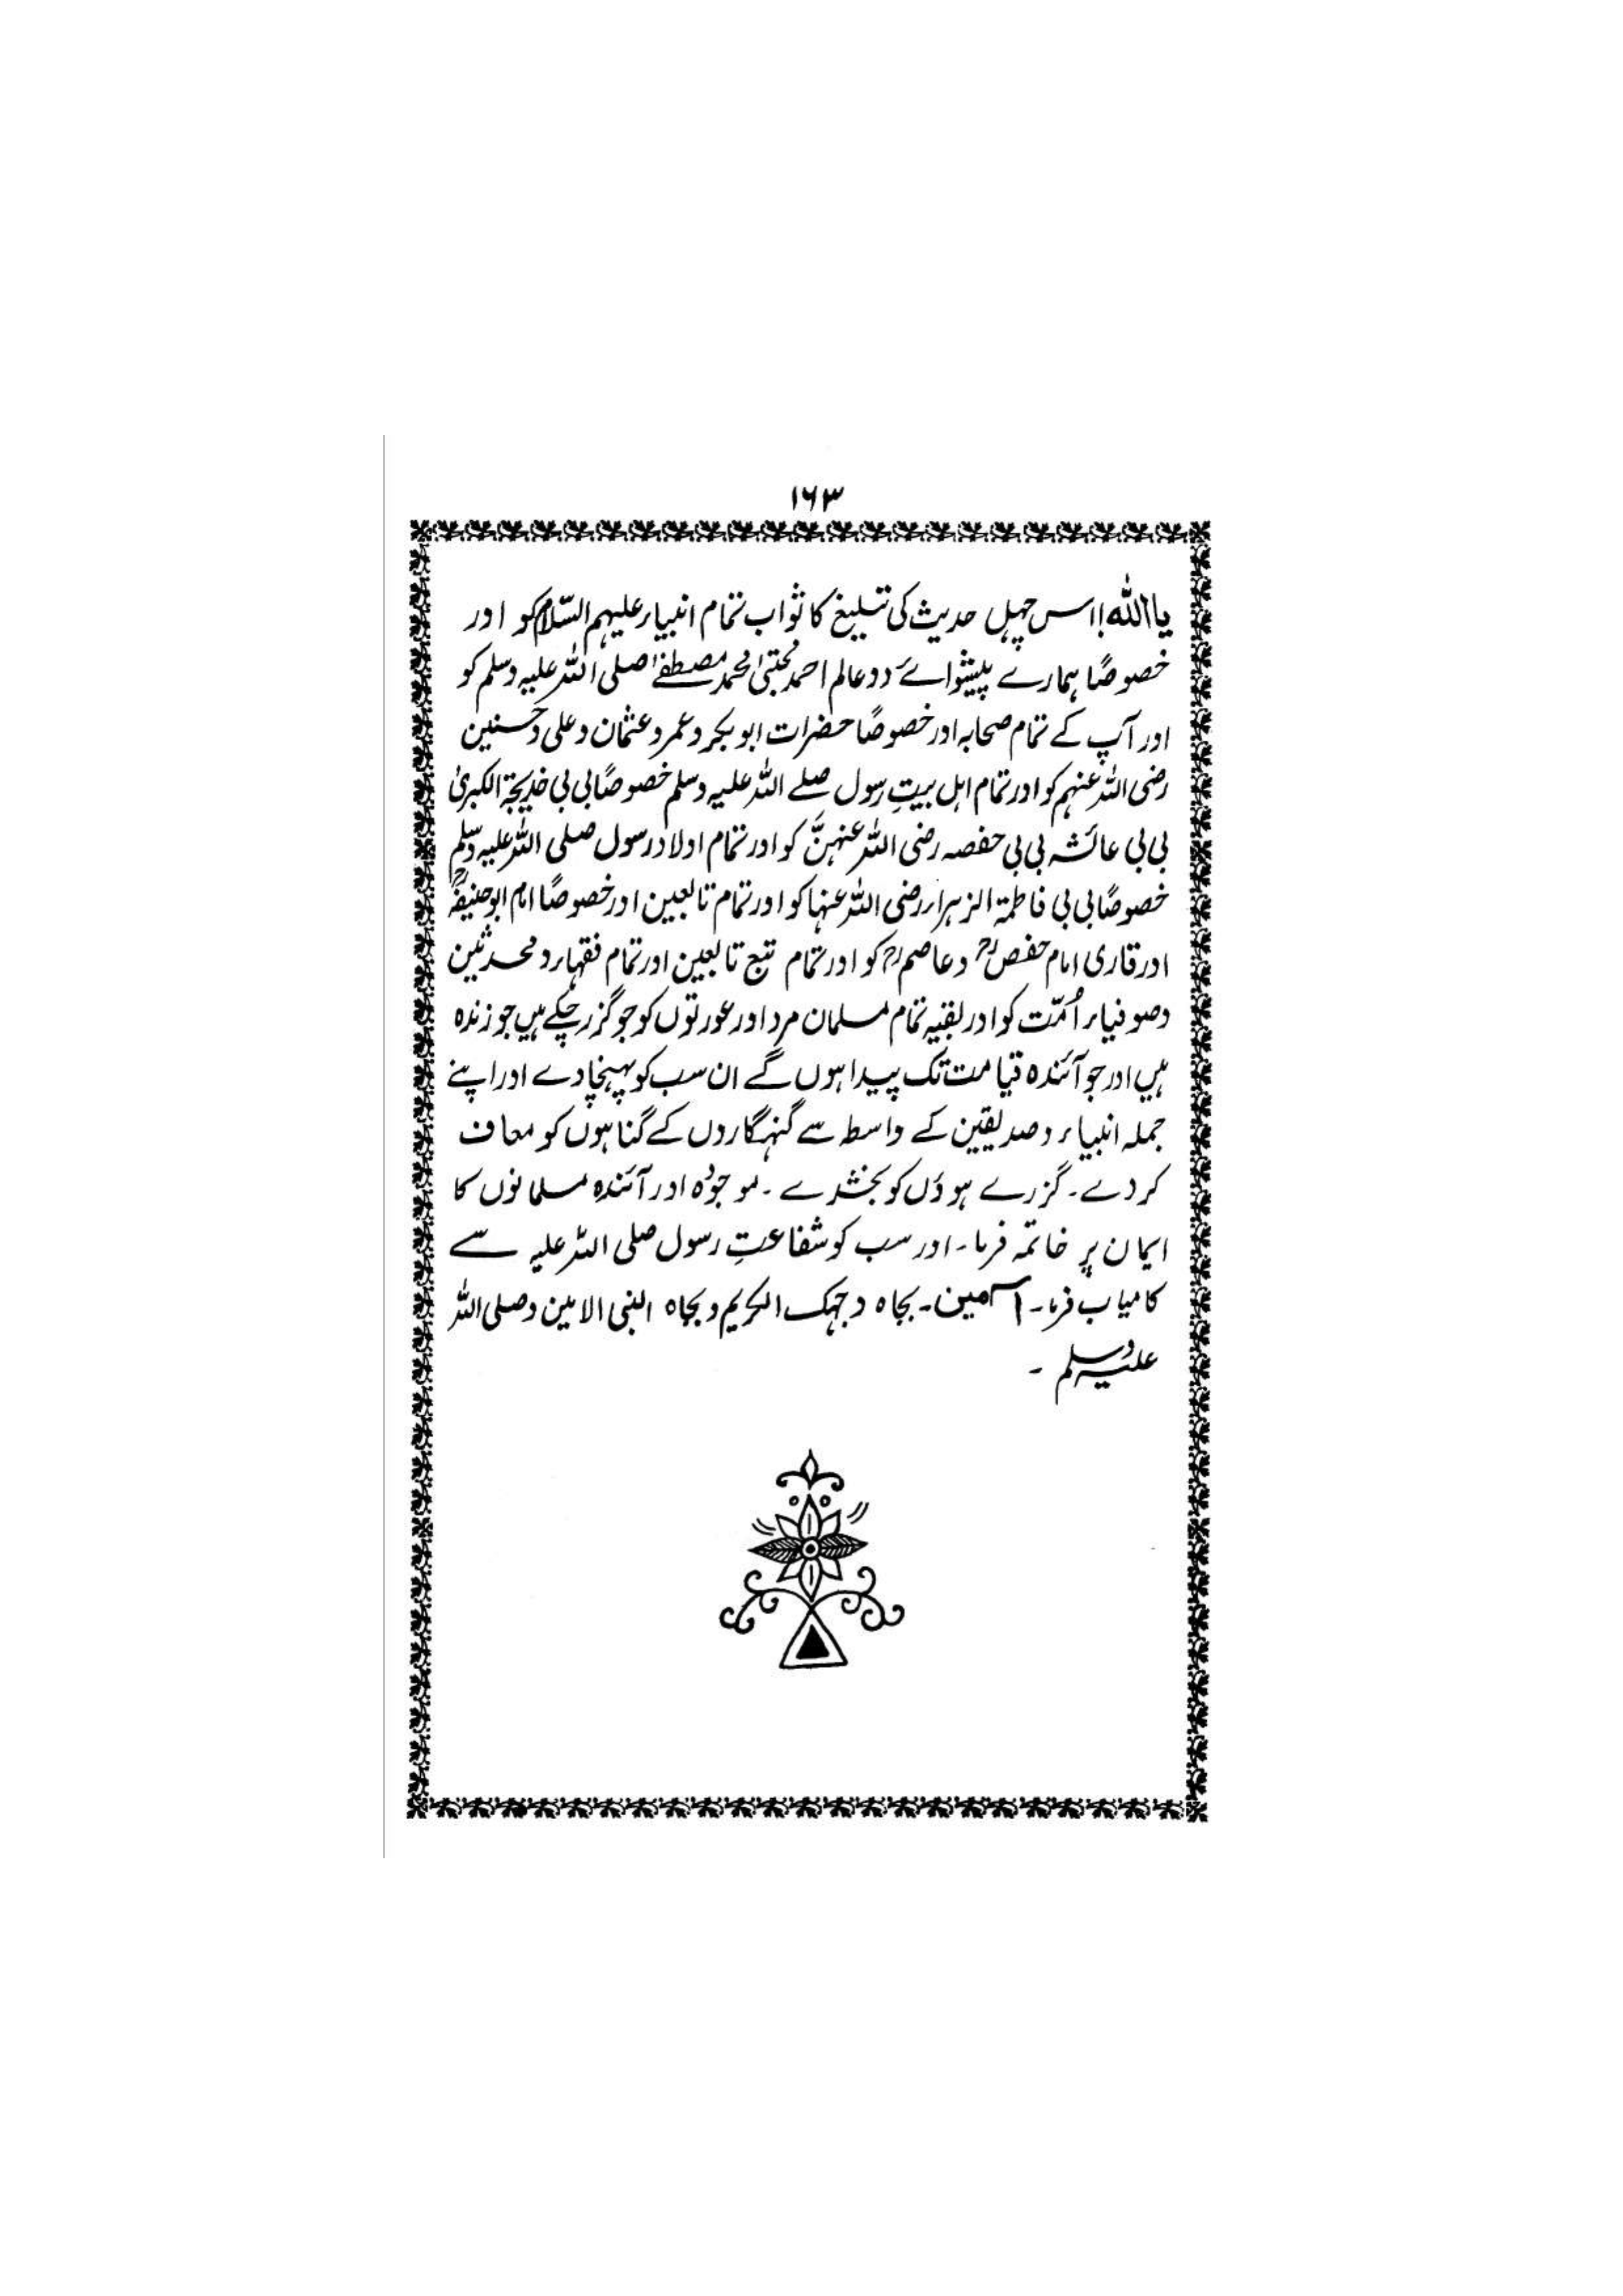 ۱۶۳
یااللہ! اس چہل حدیث کی تبلیغ کا ثواب تمام انبیاء علیہم السّلام کو اور
خصوصًا ہمارے پیشوائے دوعالم احمد مجتبیٰ محمد مصطفےٰ صلی اللہ علیہ وسلم کو
اور آپ کے تمام صحابہ اور خصوصًا حضرات ابوبکر و عمر و عثمان و علی و حسنین
رضی اللہ عنہم کو اور تمام اہل بیتِ رسول صلے اللہ علیہ وسلم خصوصًا بی بی خدیجۃ الکبریٰ
بی بی عائشہ بی بی حفصہ رضی اللہ عنہنَّ کو اور تمام اولاد رسول صلی اللہ علیہ وسلم
خصوصًا بی بی فاطمۃ الزہراء رضی اللہ عنہا کو اور تمام تابعین اور خصوصًا امام ابوحنیفہؒ
اور قاری امام حفصؒ و عاصمؒ کو اور تمام تبع تابعین اور تمام فقہاء و محدثین
وصوفیاء اُمّت کو اور بقیہ تمام مسلمان مرد اور عورتوں کو جو گزر چکے ہیں جو زندہ
ہیں اور جو آئندہ قیامت تک پیدا ہوں گے ان سب کو پہنچا دے اور اپنے
جملہ انبیاء و صدیقین کے واسطہ سے گنہگاروں کے گناہوں کو معاف
کر دے۔ گزرے ہوؤں کو بخشدے ۔ موجودہ اور آئندہ مسلمانوں کا
ایمان پر خاتمہ فرما۔ اور سب کو شفاعتِ رسول صلی اللہ علیہ سے
کامیاب فرما۔ آمین۔ بجاہ وجہک الکریم وبجاہ النبی الامین وصلی اللہ
علیہ وسلم ۔